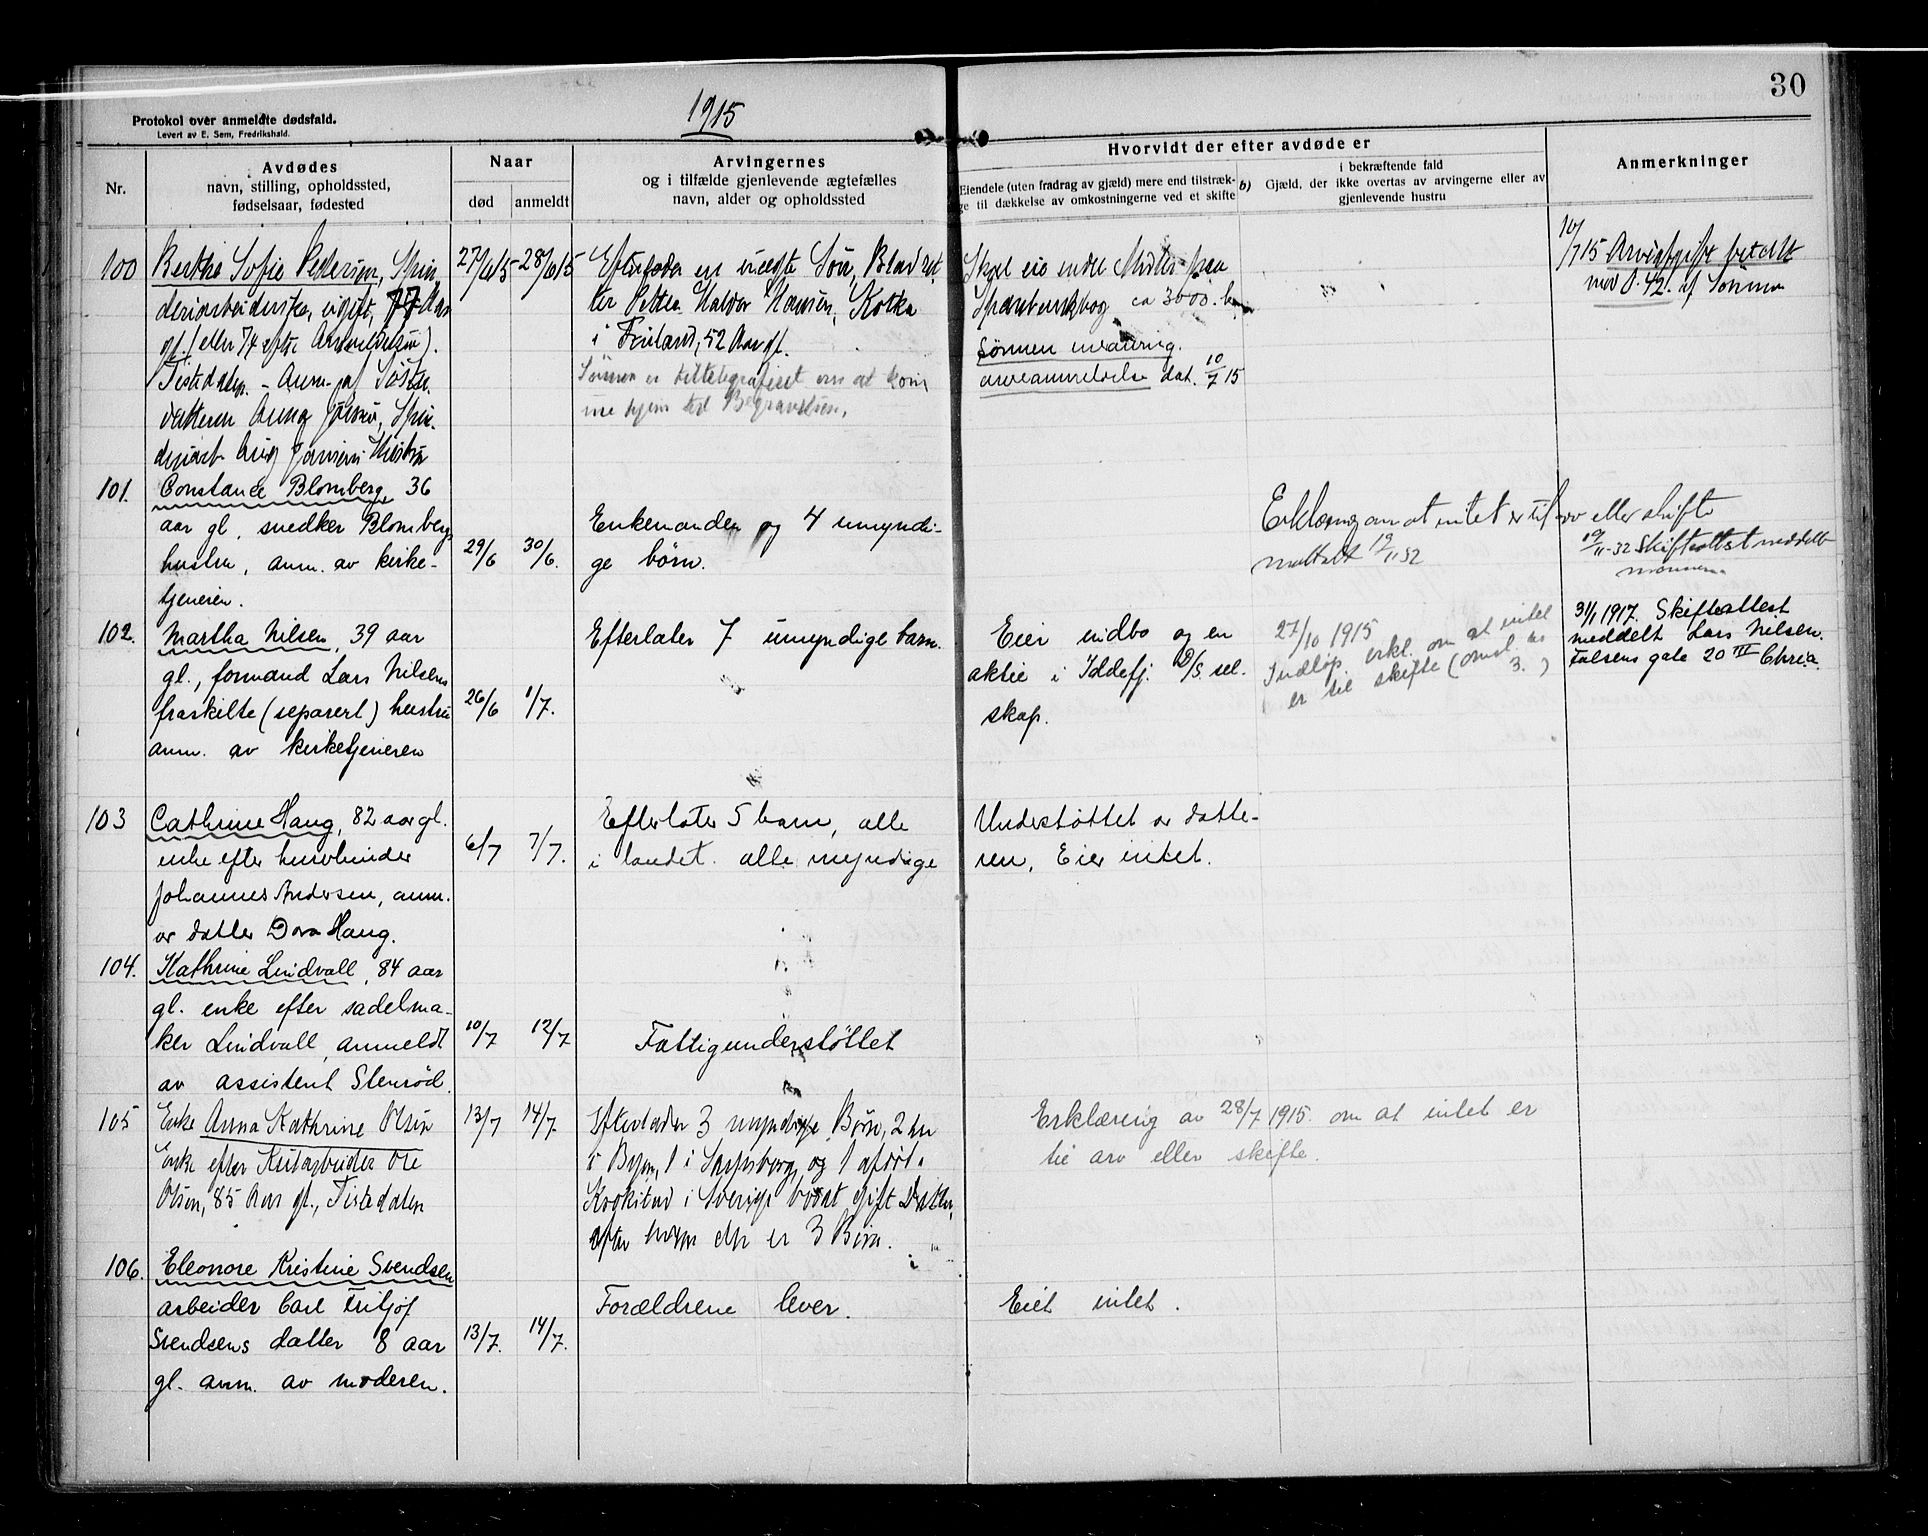 30
1915
Protokol over anmeldte dødsfald.
Levert av E. Sem, Fredrikshald.
Nr.
Avdødes
navn, stilling, opholdssted,
fødselsaar, fødested
Naar
død
anmeldt
Arvingernes
og i tilfælde gjenlevende ægtefælles
navn, alder og opholdssted
Hvorvidt der efter avdøde er
Eiendele (uten fradrag av gjæld) mere end tilstræk-
ge til dækkelse av omkostningerne ved et skifte
b)
i bekræftende fald
Gjæld, der ikke overtas av arvingerne eller av
gjenlevende hustru
Anmerkninger
100
Bertha Sofie Pedersen, Spin
deriarbeiderske, ugift, 77 Aar
gl. (eller 74 efter Anmeldelsen).
Tistedalen. - Anm. af Søster
datteren Anna Jansen, Spin-
deriarb. Aug Jansens Hustru
27/6 15
28/6 15
Efterlader en uægte Søn,
ter Petter Haldor Hansen, Kotka
i Finland, 52 Aar gl.
Sønnen er tiltelegrafert om at kom
me hjem til Begravelsen.
Skal eie endel Midler paa
Sparebankbog ca 3000.
Sønnen enearving.
arveanmeldelse dat. 10/7 15
10/7 15 Arveafgift betalt
med 0.42. af Sønnen
101.
Constance Blomberg, 36
aar gl, snedker Blombergs
hustru, anm. av kirke-
tjeneren.
29/6
30/6.
Enkemanden og 4 umyndi-
ge børn.
Erklæring om at intet er til arv eller skifte
mottatt 19/11 32
19/11-32 Skifteattest meddelt
102.
Martha Nilsen, 39 aar
gl., formand Lars Nilsens
fraskilte (separert) hustru
anm. av kirketjeneren
26/6
1/7.
Efterlater 7 umyndige barn.
Eier indbo og en
aktie i Iddefj. D/S. sel.
skap.
27/10 1915
Indløp. erkl. om at intet
er til skifte (omsl. no
3.)
31/1 1917. Skifteattest
meddelt Lars Nilsen.
Falsens gate 20 III Chria.
103
Cathrine Haug, 82 aar gl.
enke efter
Johannes Andersen, anm.
av datter Dora Haug.
6/7
7/7.
Efterlater 5 barn, alle
i landet. alle myndige
Understøttet av datte-
ren. Eier intet.
104.
Kathrine Lindvall, 84 aar
gl. enke efter sadelma-
ker Lindvall, anmeldt
av assistent Stenrød.
10/7
12/7
Fattigunderstøttet
105
Enke Anna Kathrine Olsen
Enke efter Ole
Olsen, 85 Aar gl., Tistedalen
13/7
14/7.
Efterlader 3 myndige Børn, 2 her
i Byen, 1 i Sarpsborg, og 1 afdød i
Krokstad i Sverige boset gift Datter,
efter hvem der er 3 Børn.
Erklæring av 28/7 1915. om at intet er
til arv eller skifte.
106.
Eleonore Kristine Svendsen
arbeider Carl Fritjof
Svendsens datter 8 aar
gl. anm. av moderen.
13/7.
14/7.
Forældrene lever.
Eiet intet.